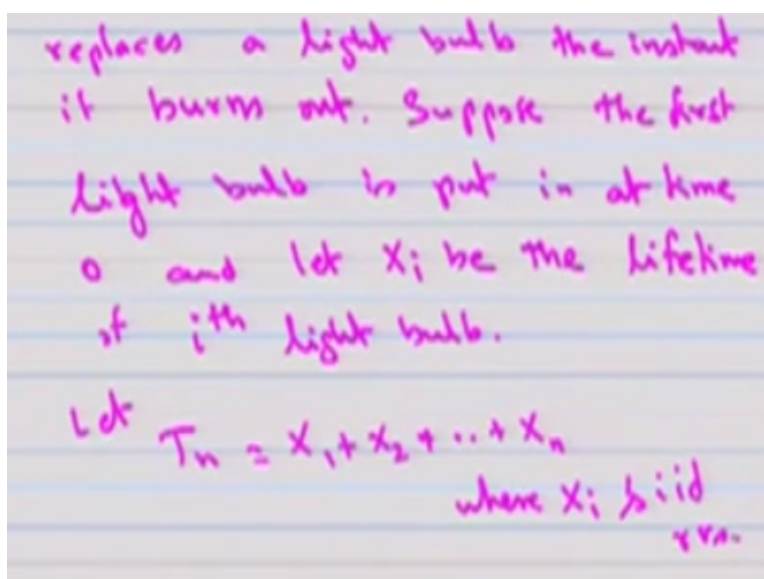 replaces a light bulb the instant
it burns out. Suppose the first
light bulb is put in at time
0 and let Xi be the lifetime
of ith light bulb.
Let Tn = X1 + X2 + .. + Xn
where Xi's iid
rvs.